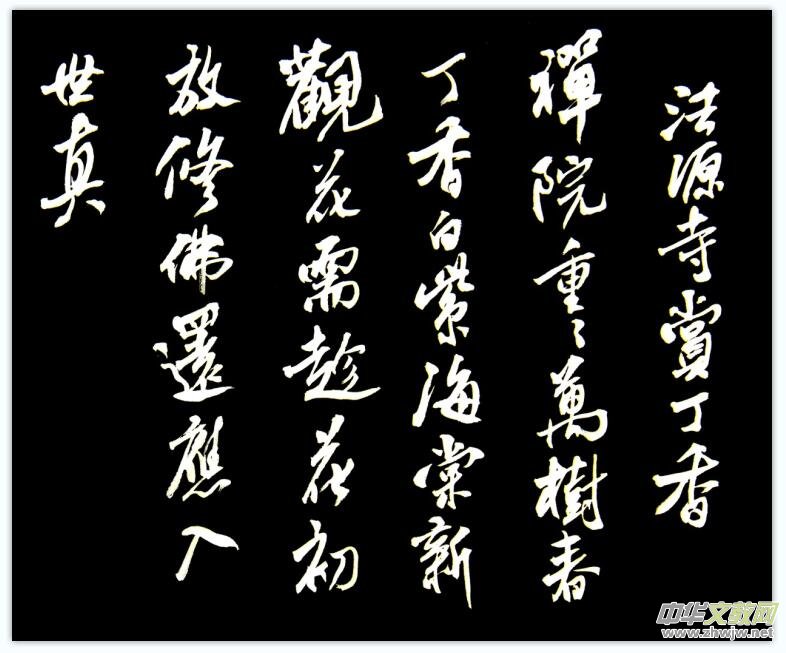 法源寺賞丁香
禪院重々萬樹春
丁香白紫海棠新
觀花需趁花初
放修佛還應入
世真
中华文教网
www.zhwjw.net